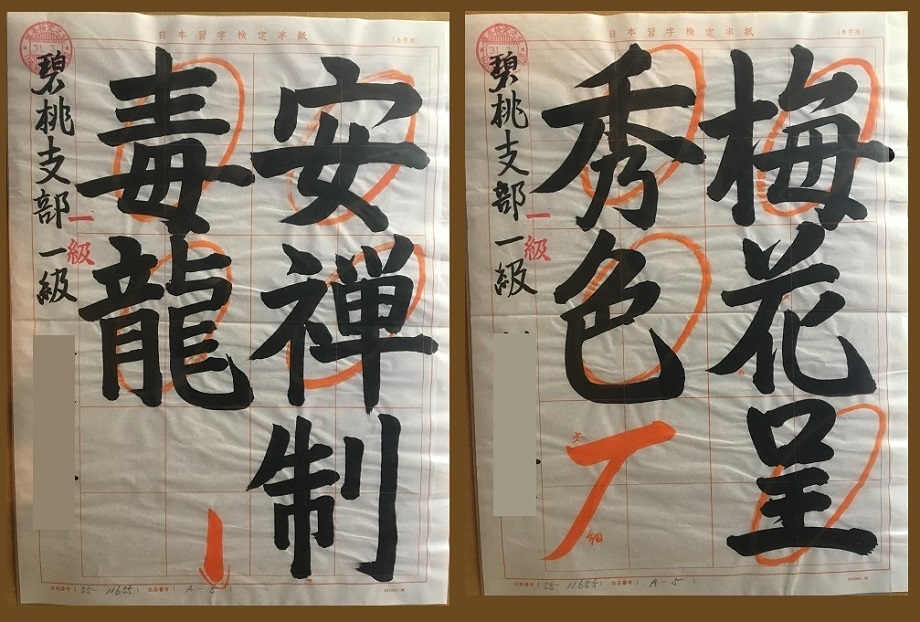 日本習字検定半紙
(6字用)
安禅制
毒龍
碧桃支部 一級
一級
(55-11655) (A-5)
日本習字検定半紙
(6字用)
梅花呈
秀色
太
細
碧桃支部 一級
一級
(55-11655) (A-5)